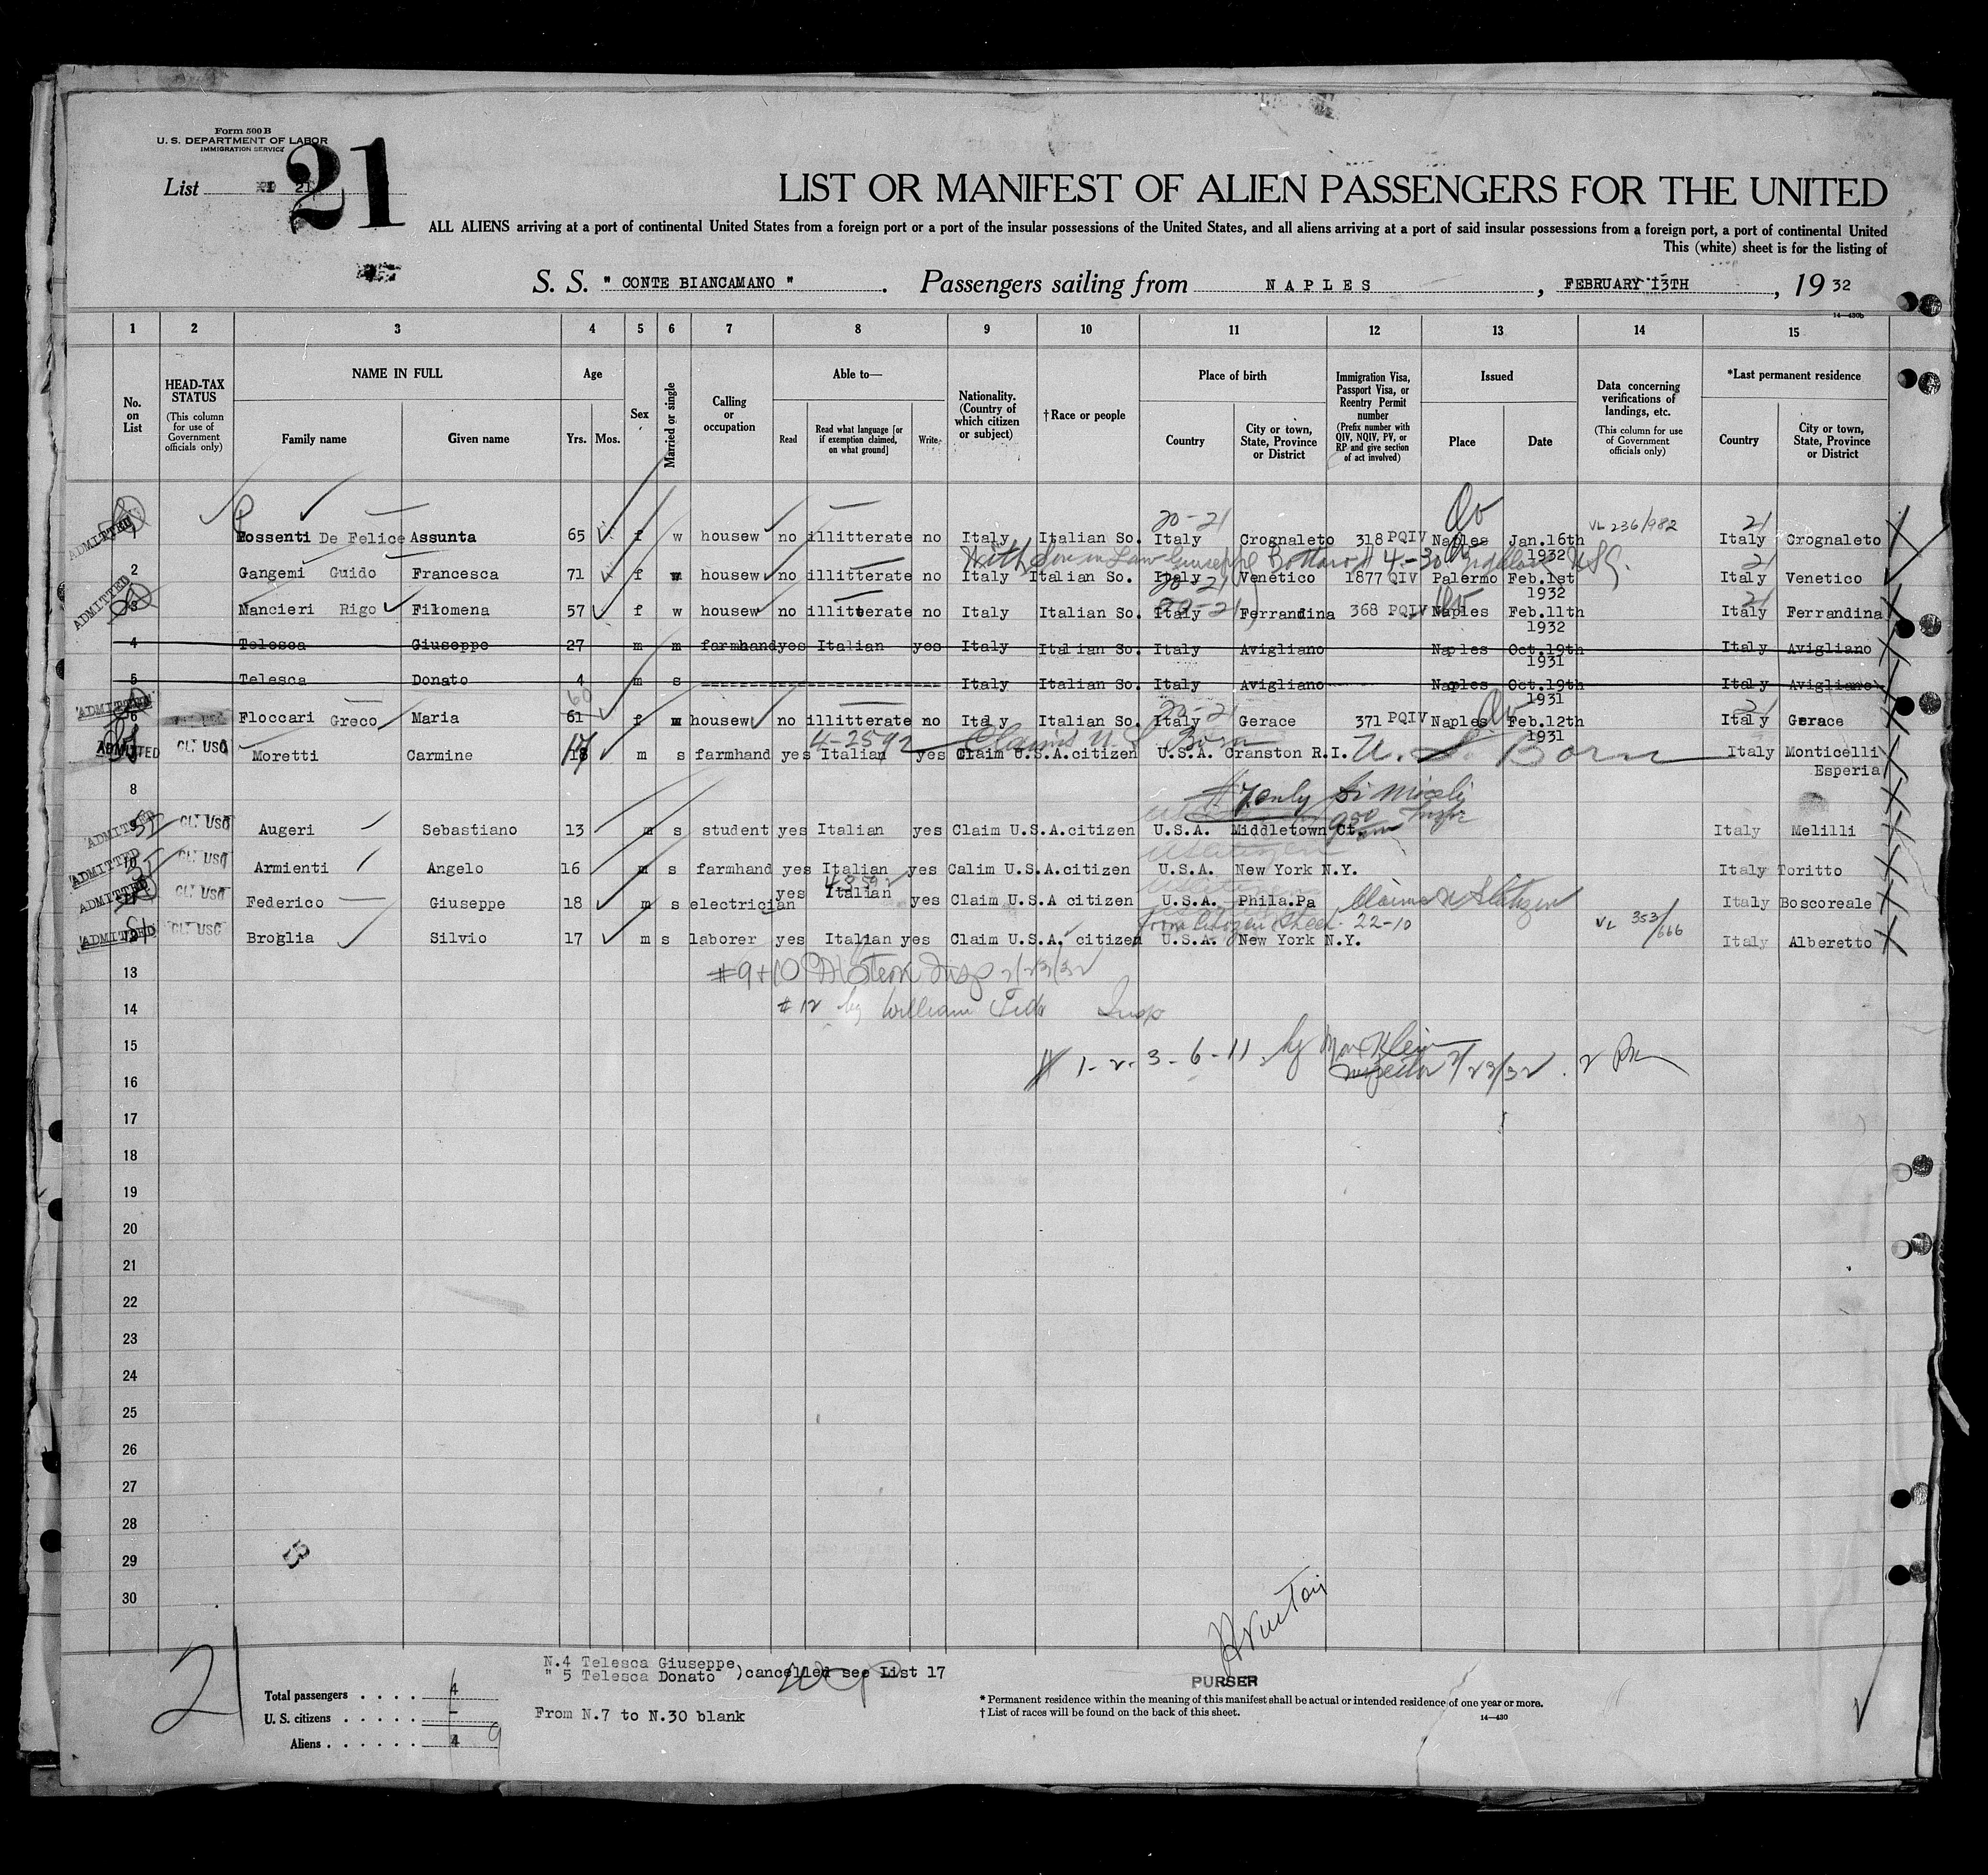 Form 500 B
U. S. DEPARTMENT OF LABOR
IMMIGRATION SERVICE
List 21
21
LIST OR MANIFEST OF ALIEN PASSENGERS FOR THE UNITED
ALL ALIENS arriving at a port of continental United States from a foreign port or a port of the insular possessions of the United States, and all aliens arriving at a port of said insular possessions from a foreign port, a port of continental United
This (white) sheet is for the listing of
S. S. " CONTE BIANCAMANO " . Passengers sailing from NAPLES , FEBRUARY 13TH , 19 32
14—430b
1 2 3 4 5 6 7 8 9 10 11 12 13 14 15
No. on List
HEAD-TAX STATUS (This column for use of Government officials only)
NAME IN FULL
Family name Given name
Age
Yrs. Mos.
Sex
Married or single
Calling or occupation
Able to—
Read Read what language [or if exemption claimed, on what ground] Write
Nationality. (Country of which citizen or subject)
†Race or people
Place of birth
Country City or town, State, Province or District
Immigration Visa, Passport Visa, or Reentry Permit number (Prefix number with QIV, NQIV, PV, or RP and give section of act involved)
Issued
Place Date
Data concerning verifications of landings, etc. (This column for use of Government officials only)
*Last permanent residence
Country City or town, State, Province or District
20-21 VL 236/982 21
ADMITTED 1 Possenti De Felice Assunta 65 f w housew no illitterate no Italy Italian So. Italy Crognaleto 318 PQIV Naples Jan.16th 1932 Italy Crognaleto
With Son in Law Giuseppe 4-30 21
2 Gangemi Guido Francesca 71 f w housew no illitterate no Italy Italian So. Italy Venetico 1877 QIV Palermo Feb.1st 1932 Italy Venetico
20-21 21
ADMITTED 3 Mancieri Rigo Filomena 57 f w housew no illitterate no Italy Italian So. Italy Ferrandina 368 PQIV Naples Feb.11th 1932 Italy Ferrandina
4 Telesca Giuseppe 27 m m farmhand yes Italian yes Italy Italian So. Italy Avigliano Naples Oct.19th 1931 Italy Avigliano
5 Telesca Donato 4 m s Italy Italian So. Italy Avigliano Naples Oct.19th 1931 Italy Avigliano
60 20-21 21
ADMITTED 6 Floccari Greco Maria 61 f w housew no illitterate no Italy Italian So. Italy Gerace 371 PQIV Naples Feb.12th 1931 Italy Gerace
4-2592 Claims U S Born
ADMITTED USC Moretti Carmine 18 17 m s farmhand yes Italian yes Claim U.S.A.citizen U.S.A. Cranston R.I. U. S. Born Italy Monticelli Esperia
8
#7 only
ADMITTED USC Augeri Sebastiano 13 m s student yes Italian yes Claim U.S.A.citizen U.S.A. Middletown Ct. Italy Melilli
US citizen
ADMITTED 10 USC Armienti Angelo 16 m s farmhand yes Italian yes Calim U.S.A.citizen U.S.A. New York N.Y. Italy Toritto
US citizen
ADMITTED USC Federico Giuseppe 18 m s electrician yes Italian yes Claim U.S.A citizen U.S.A. Phila.Pa Claims US Citizen Italy Boscoreale
from Citizen Sheet 22-10 VL 353/666
ADMITTED USC Broglia Silvio 17 m s laborer yes Italian yes Claim U.S.A. citizen U.S.A. New York N.Y. Italy Alberetto
13 #9+10 Insp 2/23/32
14 #12 by William Insp
15 # 1-2-3-6-11 by Max Klein
16 Inspector 2/23/32 2 PM
17
18
19
20
21
22
23
24
25
26
27
28
29
30
B
21
N.4 Telesca Giuseppe
" 5 Telesca Donato )cancelled see List 17
From N.7 to N.30 blank
Total passengers . . . . 4
U. S. citizens . . . . . -
Aliens . . . . . . 4 9
PURSER
* Permanent residence within the meaning of this manifest shall be actual or intended residence of one year or more.
† List of races will be found on the back of this sheet.
14—430